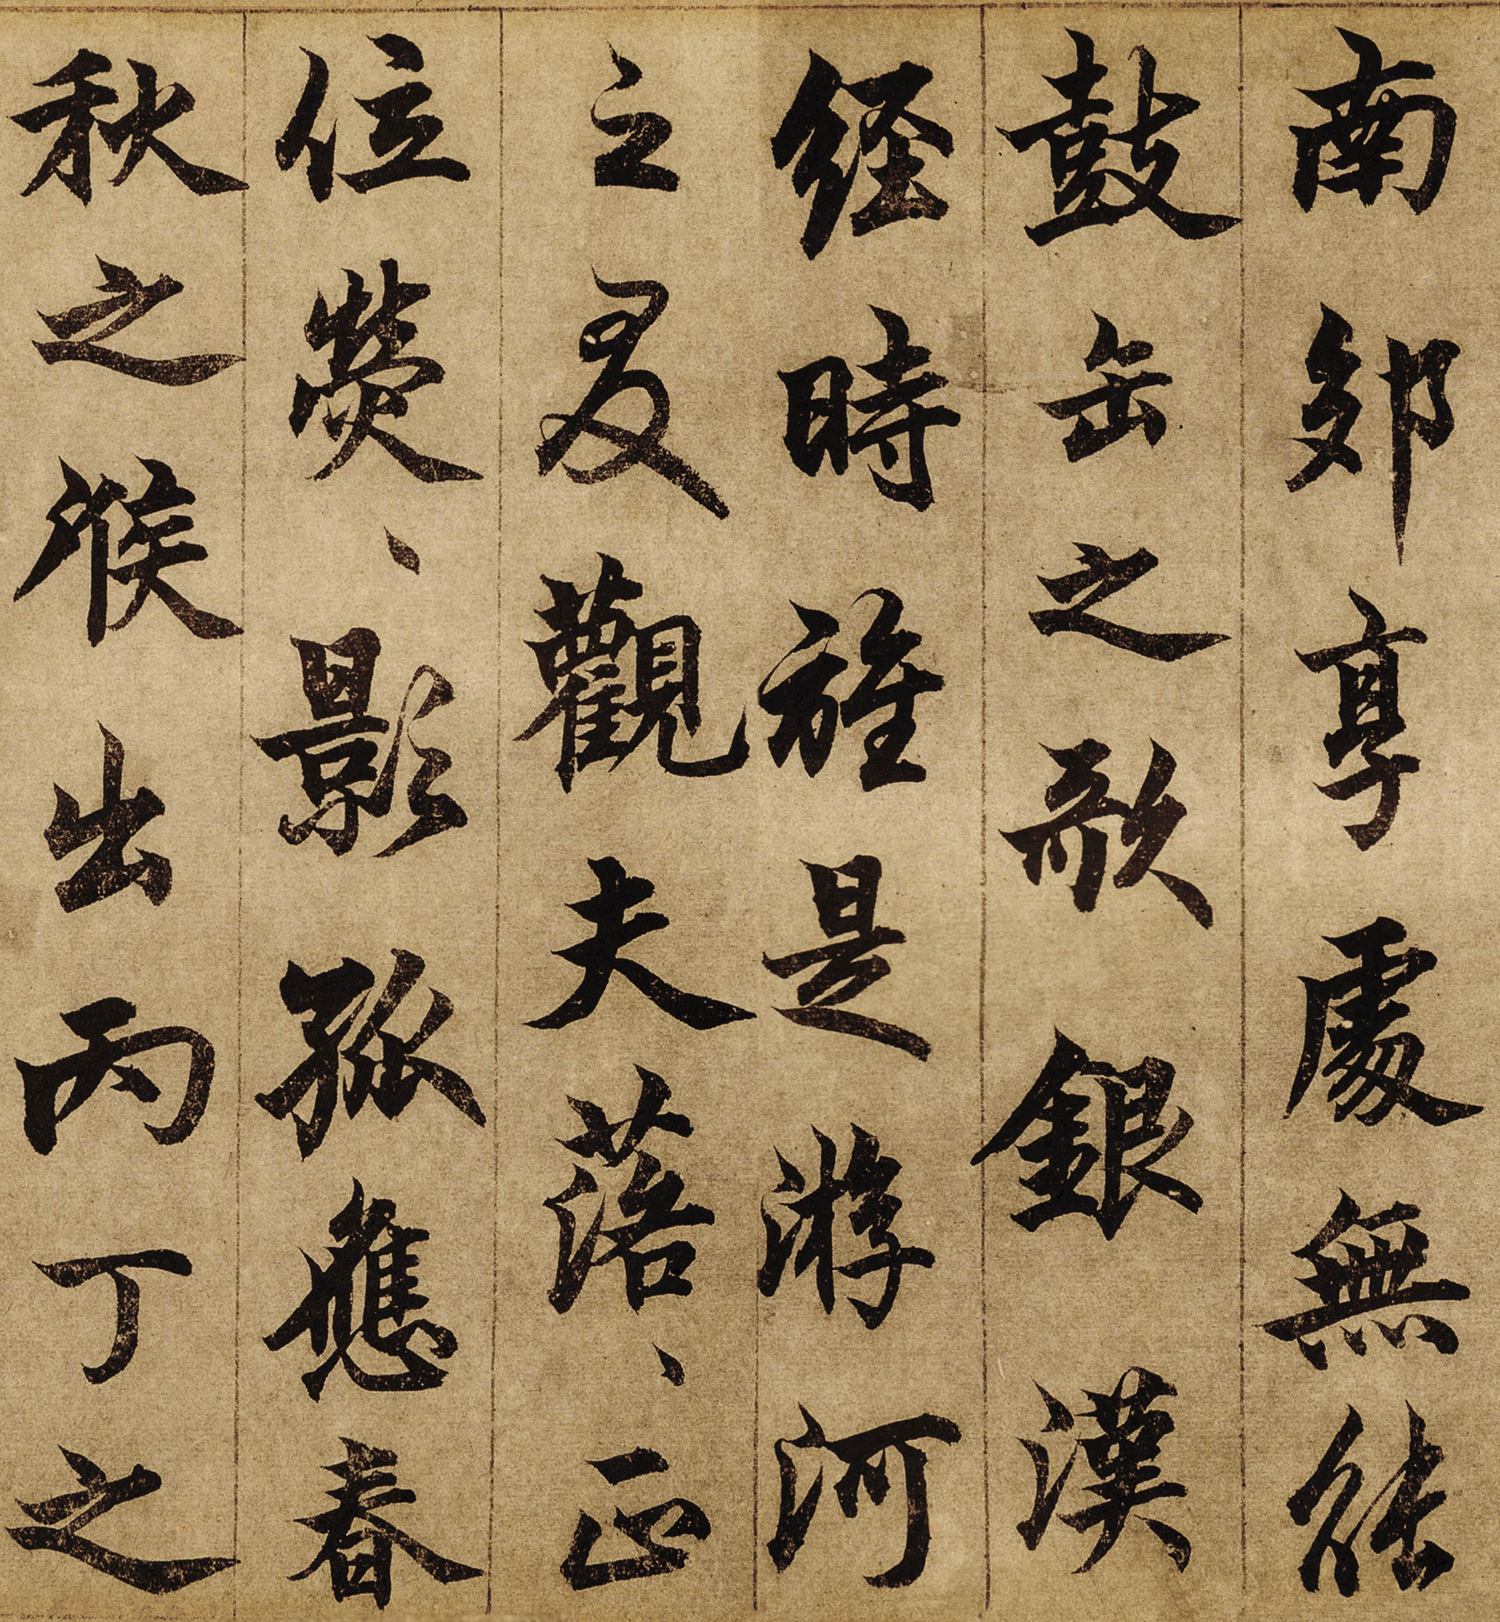 南郊享處無能
鼓缶之歌銀漢
経時誰是游河
之叟觀夫落、正
位熒、影孤應春
秋之候出丙丁之